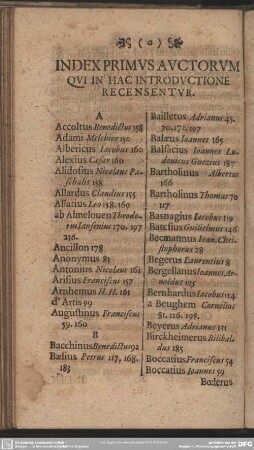 ( o )
INDEX PRIMVS AVCTORVM
QVI IN HAC INTRODVCTIONE
RECENSENTVR.
A
Accoltus Benedictus 158
Adami Melchior 150
Albericus Iacobus 160
Alexius Cesar 160
Alidosius Nicolaus Pa-
schalis 158
Allardus Claudius 155
Allatius Leo 158. 169
ab Almeloueen Theodo-
rus Iansonius 170. 197
216.
Ancillon 178
Anonymus 81
Antonius Nicolaus 161
Arisius Franciscus 157
Arnhemus H. H. 161
d' Artis 99
Augustinus Franciscus
59. 160
B
Bacchinus Benedictus 92
Bælius Petrus 117, 168.
183
Bailletus Adrianus 45.
70. 171. 197
Balæus Ioannes 165
Balsacius Ioannes Lu-
douicus Guezius 187
Bartholinus Albertus
166
Bartholinus Thomas 70
117
Basnagius Iacobus 119
Batesius Guilielmus 146
Becmannus Ioan. Chri-
stophorus 28
Begerus Laurentius 8
Bergellanus Ioannes Ar-
noldus 105
Bernhardus Iacobus 114
a Beughem Cornelius
81. 116. 198.
Beyerus Adrianus 151
Birckheimerus Bilibal-
dus 185
Boccatius Franciscus 54
Boccatius Ioannes 59
Bœlerus